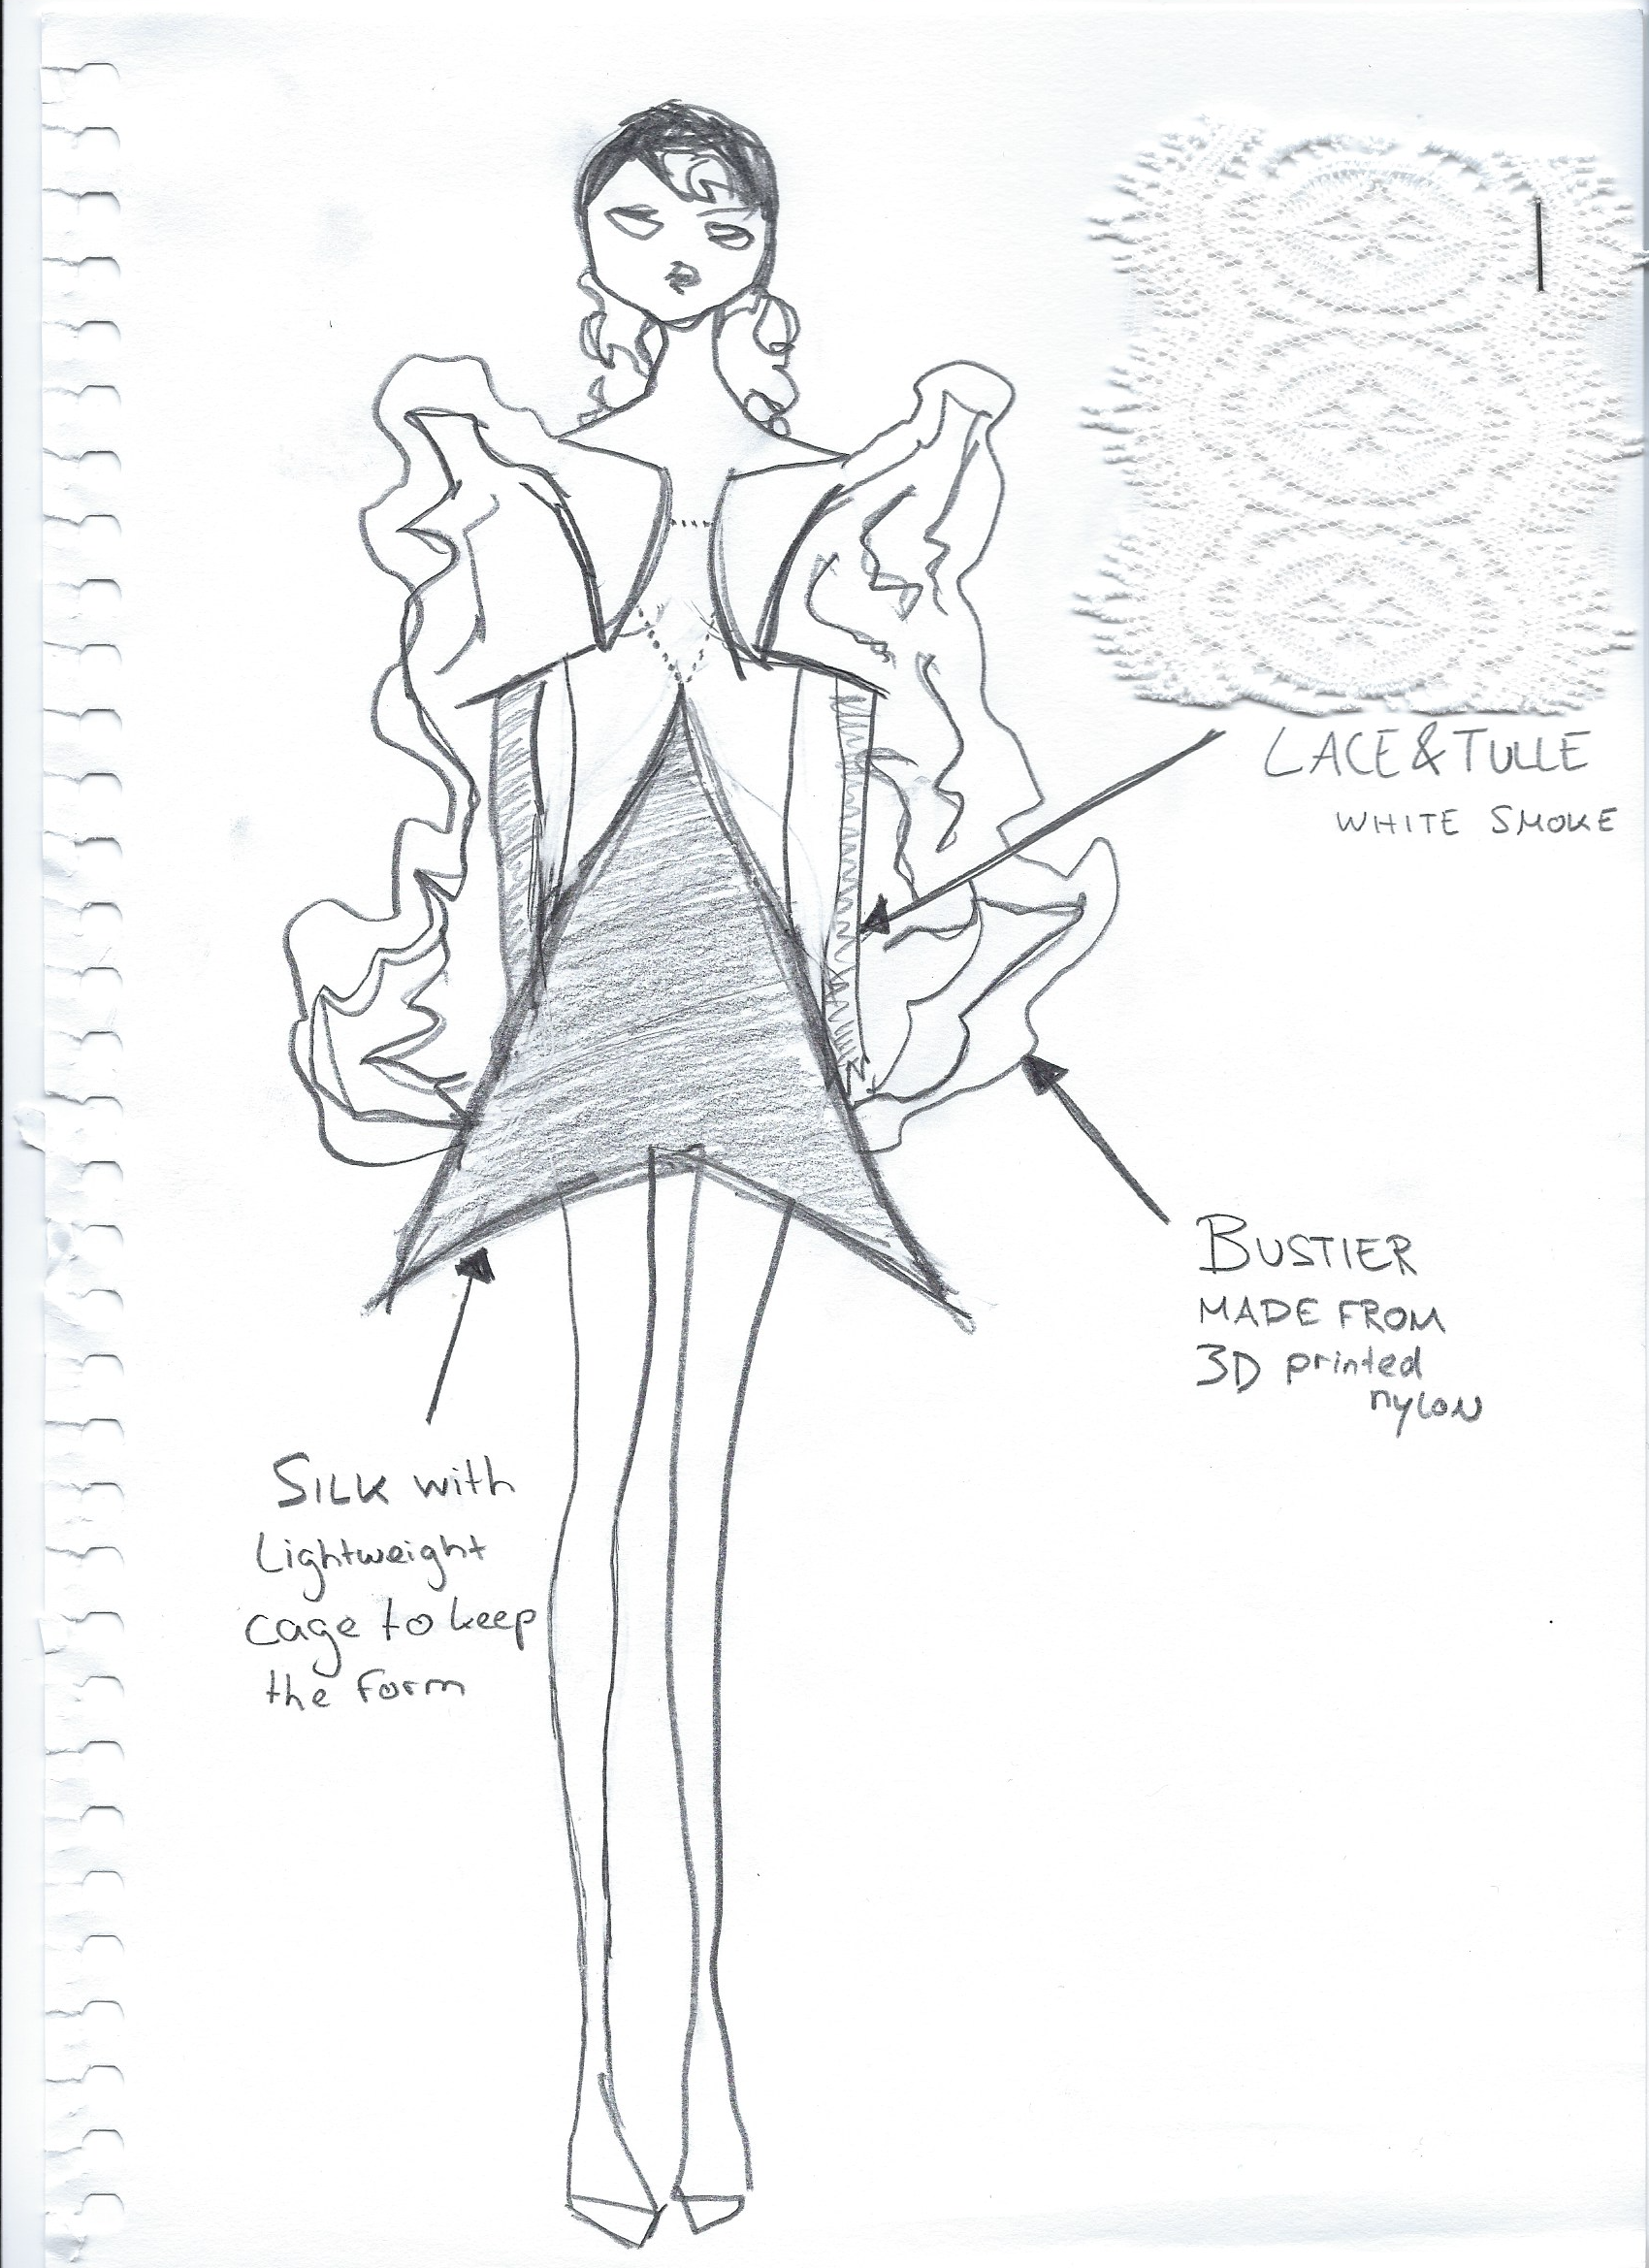 LACE & TULLE
WHITE SMOKE
BUSTIER
MADE FROM
3D printed
nylon
SILK with
Lightweight
cage to keep
the form